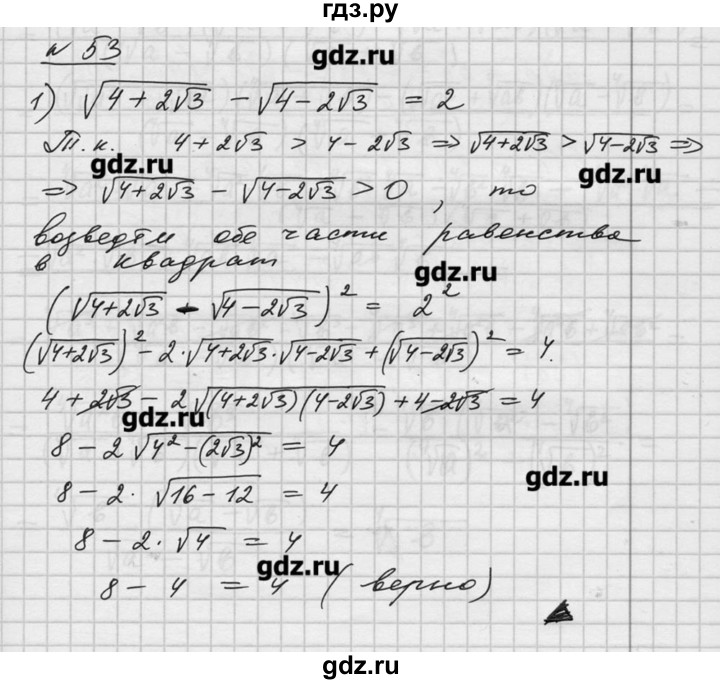 гдз.ру
№ 53
gdz.ru
1) √(4+2√3) - √(4-2√3) = 2
Т.к. 4+2√3 > 4-2√3 => √(4+2√3) > √(4-2√3) =>
gdz.ru
gdz.ru
=> √(4+2√3) - √(4-2√3) > 0, то
возведём обе части равенства
в квадрат
gdz.ru
(√(4+2√3) - √(4-2√3))² = 2²
(√(4+2√3))² - 2·√(4+2√3)·√(4-2√3) + (√(4-2√3))² = 4.
4 + 2√3 - 2√((4+2√3)(4-2√3)) + 4 - 2√3 = 4
gdz.ru
8 - 2√(4²-(2√3)²) = 4
gdz.ru
8 - 2·√(16-12) = 4
8 - 2·√4 = 4
gdz.ru
8 - 4 = 4 (верно)
gdz.ru